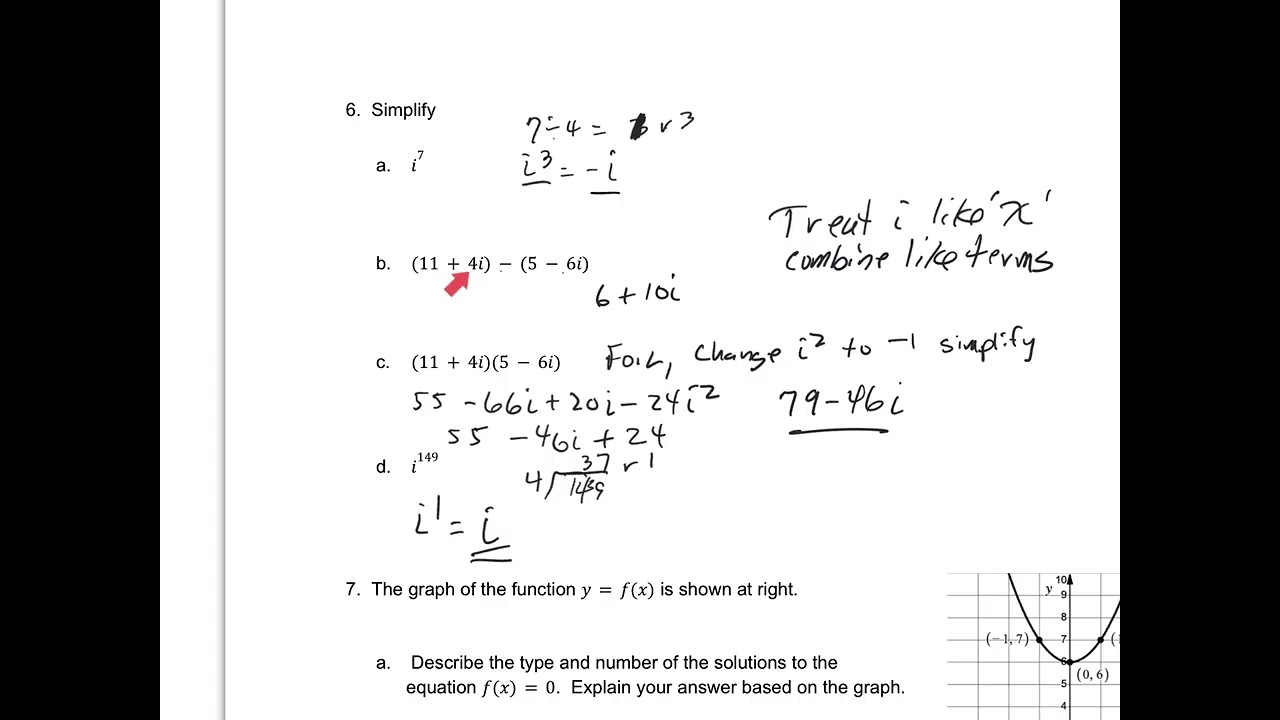 6. Simplify
7 ÷ 4 = r 3
a. i⁷
i³ = -i
Treat i like 'x'
combine like terms
b. (11 + 4i) − (5 − 6i)
6 + 10i
c. (11 + 4i)(5 − 6i)
FOIL, Change i² to -1 simplify
55 - 66i + 20i - 24i²
79 - 46i
55 - 46i + 24
d. i¹⁴⁹
37 r 1
4
i¹ = i
7. The graph of the function y = f(x) is shown at right.
y
10
9
8
(−1, 7)
7
(
6
(0, 6)
5
4
a. Describe the type and number of the solutions to the
equation f(x) = 0. Explain your answer based on the graph.